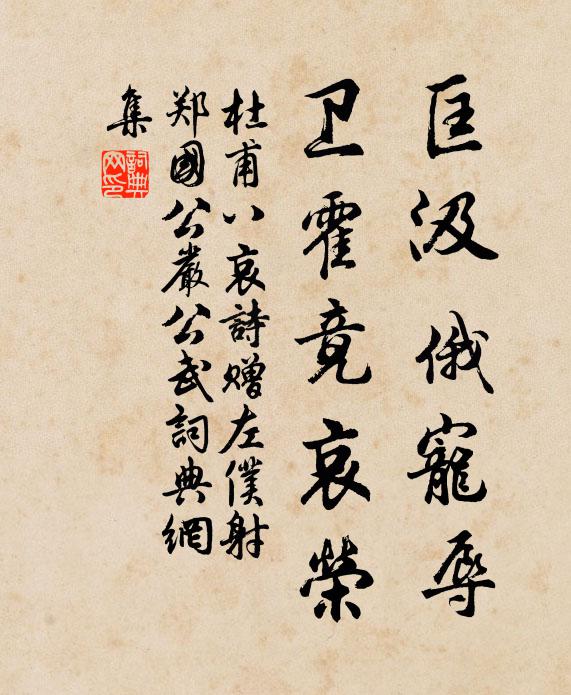 匡汲俄寵辱
卫霍竟哀榮
杜甫八哀詩赠左僕射
郑國公嚴公武詞典網
集
詞典
网印